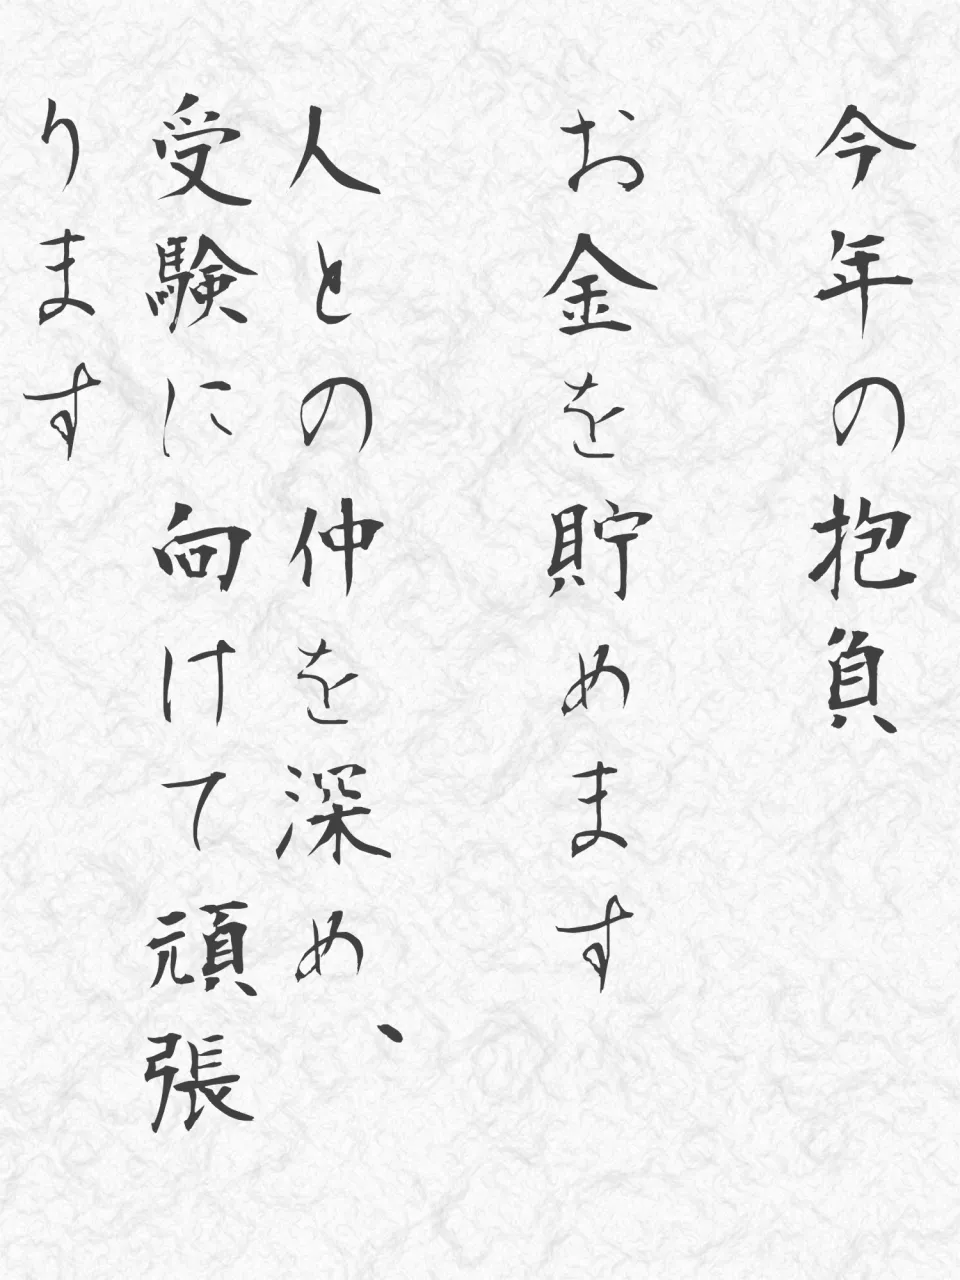 今年の抱負
お金を貯めます
人との仲を深め、
受験に向けて頑張
ります